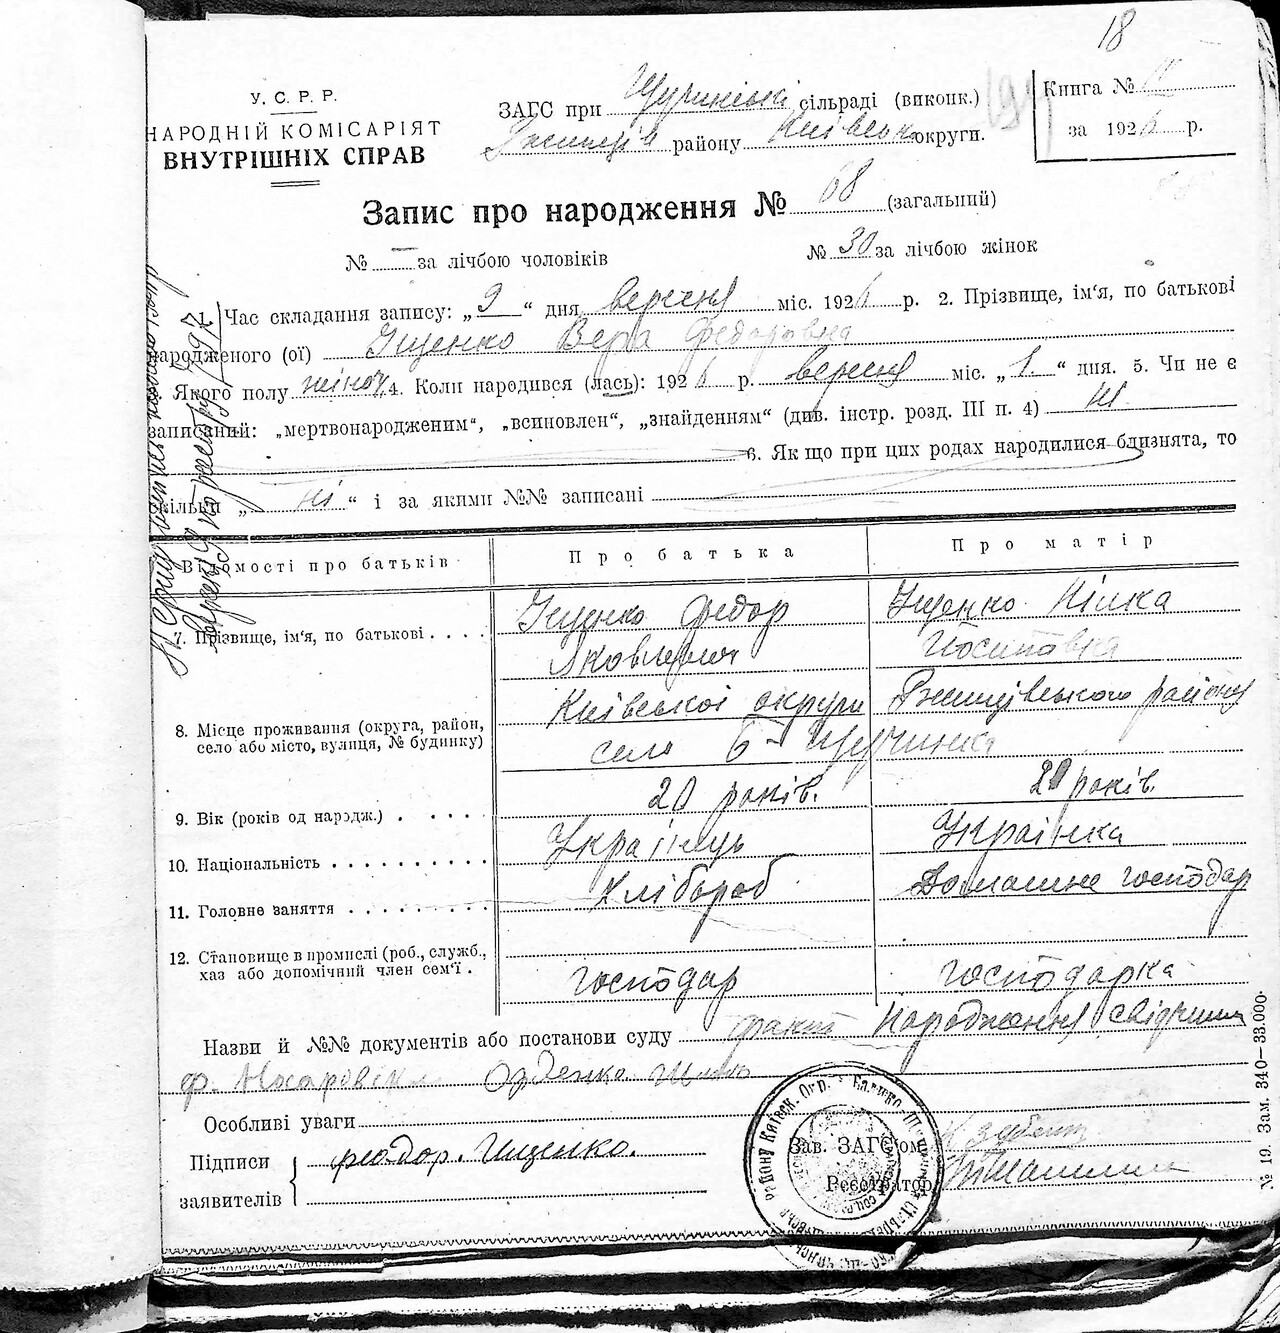 18
У. С. Р. Р.
НАРОДНІЙ КОМІСАРІЯТ
ВНУТРІШНІХ СПРАВ
ЗАГС при сільраді (виконк.)
району Київськ округи.
Книга № II
за 1926 р.
Запис про народження № 68 (загальний)
№ — за лічбою чоловіків № 30 за лічбою жінок
1. Час складання запису: „9“ дня вересня міс. 1926 р. 2. Прізвище, ім'я, по батькові
народженого (ої) Іщенко Вера Федоровна
Якого полу жіноч. 4. Коли народився (лась): 1926 р. вересня міс. „1“ дня. 5. Чи не є
записаний: „мертвонародженим“, „всиновлен“, „знайденням“ (див. інстр. розд. III п. 4) ні
6. Якщо при цих родах народилися близнята, то
скільки „ні“ і за якими №№ записані
Відомості про батьків Про батька Про матір
7. Прізвище, ім'я, по батькові . . . . Іщенко Федор Іщенко
Яковлевич
8. Місце проживання (округа, район, село або місто, вулиця, № будинку) Київської округи Ржищівського району
село Б-Щучинка
9. Вік (років од народж.) . . . . . 20 років. 20 років.
10. Національність . . . . . . . . . . Українець Українка
11. Головне заняття . . . . . . . . . Хлібороб Домашнє господар
12. Становище в промислі (роб., служб., хаз або допомічний член сем'ї . господар господарка
Назви й №№ документів або постанови суду факт народження
Особливі уваги
Підписи
заявителів
Феодор. Ищенко.
Зав. ЗАГС'ом
Реєстратор
№ 19. Зам. 340—33.000.